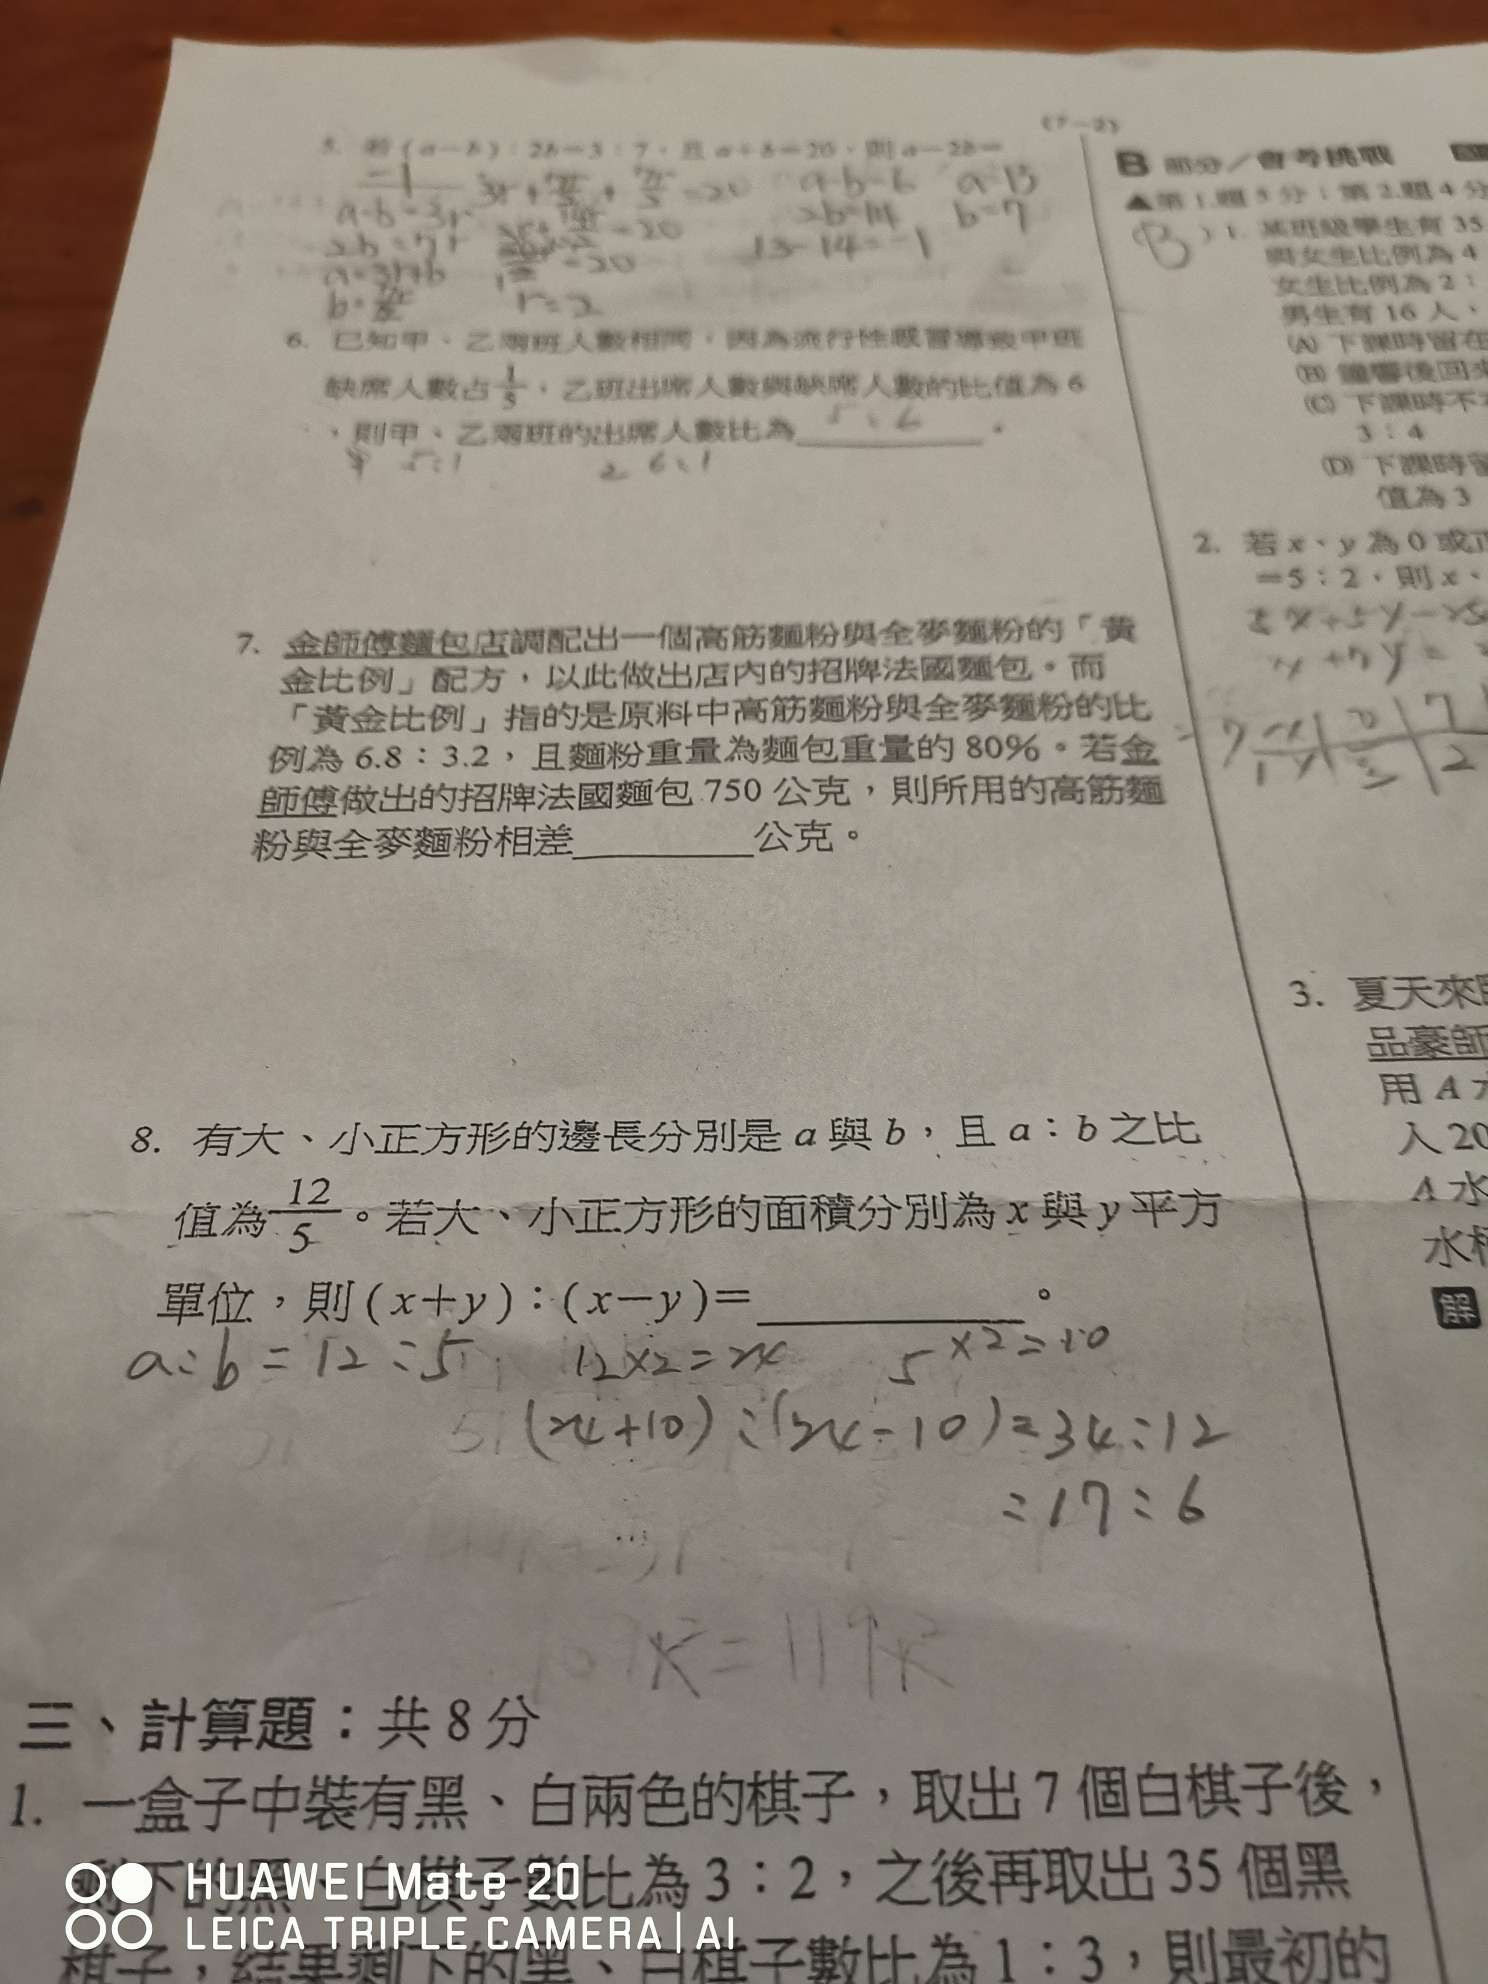 (7-2)
5. 若(a-b):2b=3:7,且a+b=20,則a-2b=
-1
a-b=6 a=13
a-b=3r
2b=14 b=7
2b=7r
=20
13-14=-1
=20
r=2
6. 已知甲、乙兩班人數相同,因為流行性感冒導致甲班
缺席人數占1/5,乙班出席人數與缺席人數的比值為6
,則甲、乙兩班的出席人數比為 5:6 。
5:1 6:1
7. 金師傅麵包店調配出一個高筋麵粉與全麥麵粉的「黃
金比例」配方,以此做出店內的招牌法國麵包。而
「黃金比例」指的是原料中高筋麵粉與全麥麵粉的比
例為6.8:3.2,且麵粉重量為麵包重量的80%。若金
師傅做出的招牌法國麵包750公克,則所用的高筋麵
粉與全麥麵粉相差________公克。
8. 有大、小正方形的邊長分別是a與b,且a:b之比
值為12/5。若大、小正方形的面積分別為x與y平方
單位,則(x+y):(x-y)=________。
a:b=12:5 12×2=24 5×2=10
(24+10):(24-10)=34:12
=17:6
k²=119k²
三、計算題:共8分
1. 一盒子中裝有黑、白兩色的棋子,取出7個白棋子後,
剩下的黑、白棋子數比為3:2,之後再取出35個黑
棋子,結果剩下的黑、白棋子數比為1:3,則最初的
B 部分/會考挑戰
▲第1.題5分;第2.題4分
(B)1. 某班級學生有35
與女生比例為4
女生比例為2:
男生有16人、
(A) 下課時留在
(B) 鐘響後回來
(C) 下課時不
3:4
(D) 下課時留
值為3
2. 若x、y為0或正
=5:2,則x、
3. 夏天來
品豪師
用A
入20
A水
水杯
解
HUAWEI Mate 20
LEICA TRIPLE CAMERA | AI